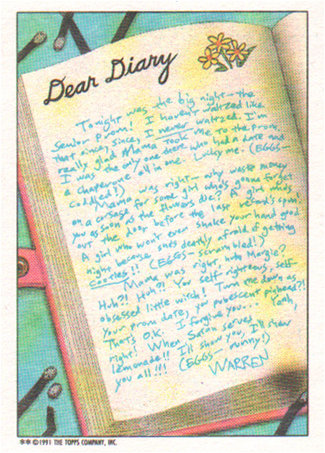 Dear Diary
Tonight was the big night—the
Senior Prom! I haven't waltzed like
that since, since, I never waltzed. I'm
really glad Mama took me to the prom.
I was the only one there who had a date and
a chaperone all in one. Lucky me. (EGGS—
Coddled?)
Mama was right—why waste money
on a corsage for some girl who's gonna forget
you as soon as the flowers die? A girl who's
out the door before the last record's spun?
A girl who won't even shake your hand good
night because she's deathly afraid of getting
cooties!! (EGGS—scrambled!)
Mama was right, huh Margie?
Huh?! Huh?! You self righteous, self-
obsessed little witch! Turn me down as
your prom date, you pubescent pighead?!
That's O.K. I forgive you... Yeah,
right! When Satan serves
lemonade!! I'll show you, I'll show
you all!!! (EGGS—runny!)
WARREN
** ©1991 THE TOPPS COMPANY, INC.